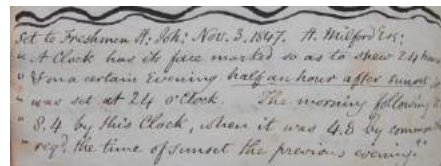 Set to Freshmen St: Joh: Nov. 3. 1847. H. Milford Esq:
"A Clock has its face marked so as to shew 24 hours
" & on a certain Evening half an hour after sunset it
" was set at 24 o'Clock. The morning following
" 8.4 by this Clock, when it was 4.8 by common
" reqd. the time of sunset the previous evening."